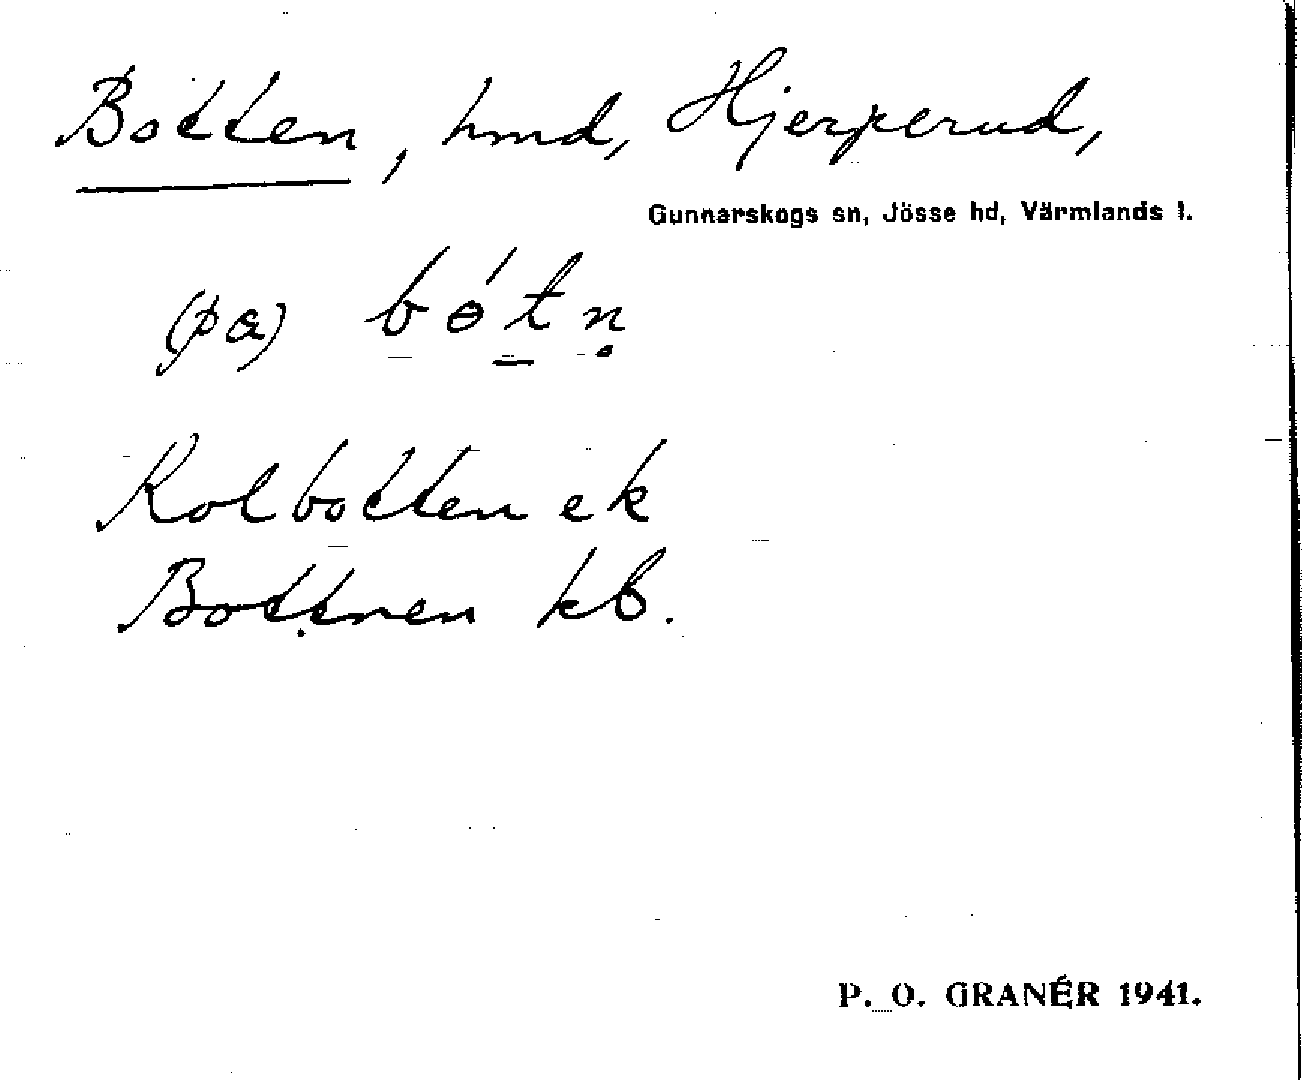 Botten, hmd, Hjerperud,
Gunnarskogs sn, Jösse hd, Värmlands l.
(pa) bɵ́tṇ
Kolbotten ek
Bottnen kb.
P. O. GRANÉR 1941.